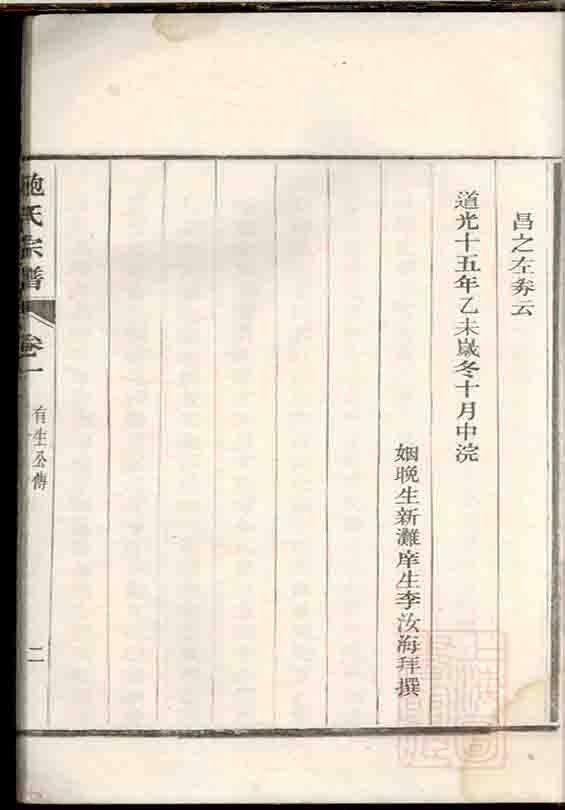 昌之左券云
道光十五年乙未歲冬十月中浣
姻晚生新灘庠生李汝海拜撰
鮑氏宗譜
卷一
有生公傳
二